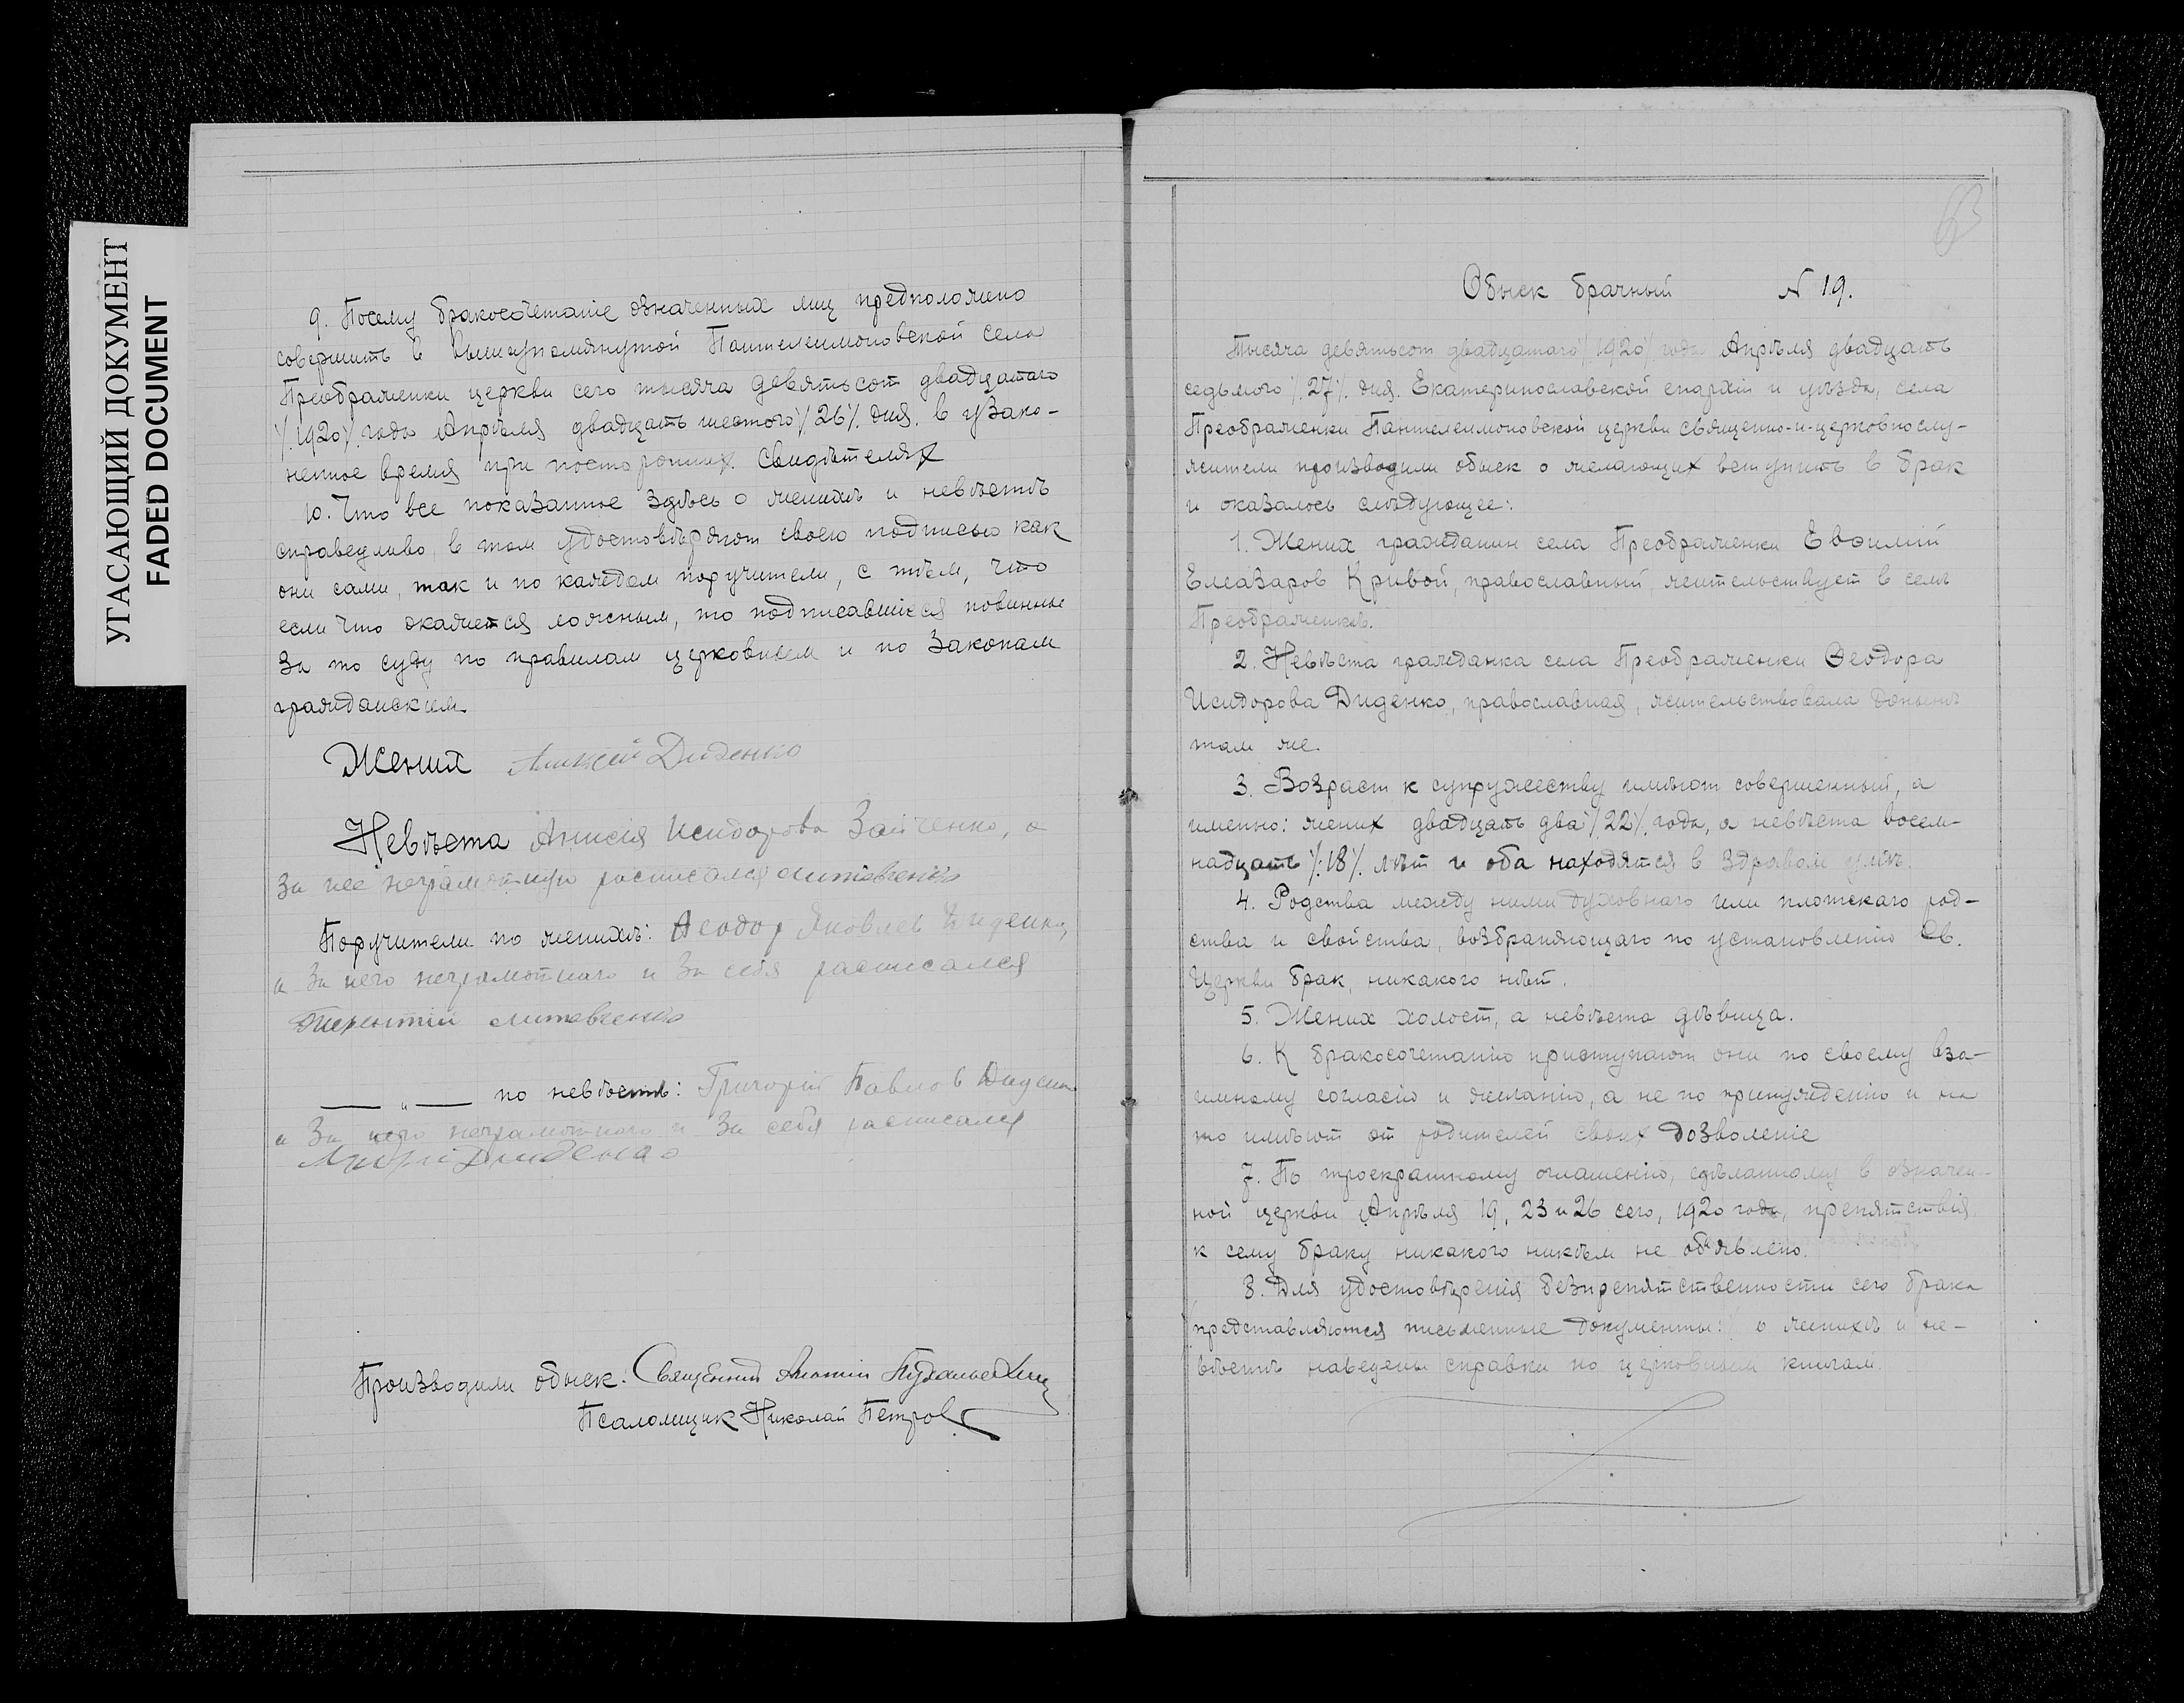 УГАСАЮЩИЙ ДОКУМЕНТ
FADED DOCUMENT
9. Посему бракосочетаніе означенных лиц предположено
совершить в вышеупомянутой Пантелеимоновской села
Преображенки церкви сего тысяча девятьсот двадцатаго
/.1920/. года Апрѣля двадцать шестого /.26/. дня. в узако-
ненное время при посторонних свидѣтелях
10. Что все показанное здѣсь о женихѣ и невѣстѣ
справедливо, в том удостовѣряют своею подписью как
они сами, так и по каждом поручители, с тѣм, что
если что окажется ложным, то подписавшіеся повинны
за то суду по правилам церковным и по законам
гражданским
Жених Алексѣй Диденко
Невѣста Анисія Исидорова Зайченко, а
за нее неграмотную росписался Литовченко
Поручители по женихѣ: Ѳеодор Яковлев Диденко,
а за него неграмотнаго и за себя расписался
Терентій Литовченко
— „ — по невѣстѣ: Григорій Павлов Диденко
а за него неграмотного и за себя расписался
Диденко
Производили обыск: Священник Антоній
Псаломщик Николай Петров
63
Обыск брачный N 19.
Тысяча девятьсот двадцатаго /.1920/. года Апрѣля двадцать
седьмого /.27/. дня. Екатеринославской епархіи и уѣзда, села
Преображенки Пантелеимоновской церкви священно-и-церковнослу-
жители производили обыск о желающих вступить в брак
и оказалось слѣдующее:
1. Жених гражданин села Преображенки Евѳимій
Елеазаров Кривой, православный, жительствует в селѣ
Преображенкѣ.
2. Невѣста гражданка села Преображенки Ѳеодора
Исидорова Диденко, православная, жительствовала донынѣ
там же.
3. Возраст к супружеству имѣют совершенный, а
именно: жених двадцать два /.22/. года, а невѣста восем-
надцать /.18/. лѣт и оба находятся в здравом умѣ.
4. Родства между ними духовнаго или плотскаго род-
ства и свойства, возбраняющаго по установленію Св.
Церкви брак, никакого нѣт.
5. Жених холост, а невѣста дѣвица.
6. К бракосочетанію приступают они по своему вза-
имному согласію и желанію, а не по принужденію и на
то имѣют от родителей своих дозволеніе
7. По троекратному оглашенію, сдѣланному в означен-
ной церкви Апрѣля 19, 23 и 26 сего, 1920 года, препятствія
к сему браку никакого никѣм не объявлено.
8. Для удостовѣренія безпрепятственности сего брака
представляются письменные документы: о женихѣ и не-
вѣстѣ наведены справки по церковным книгам.